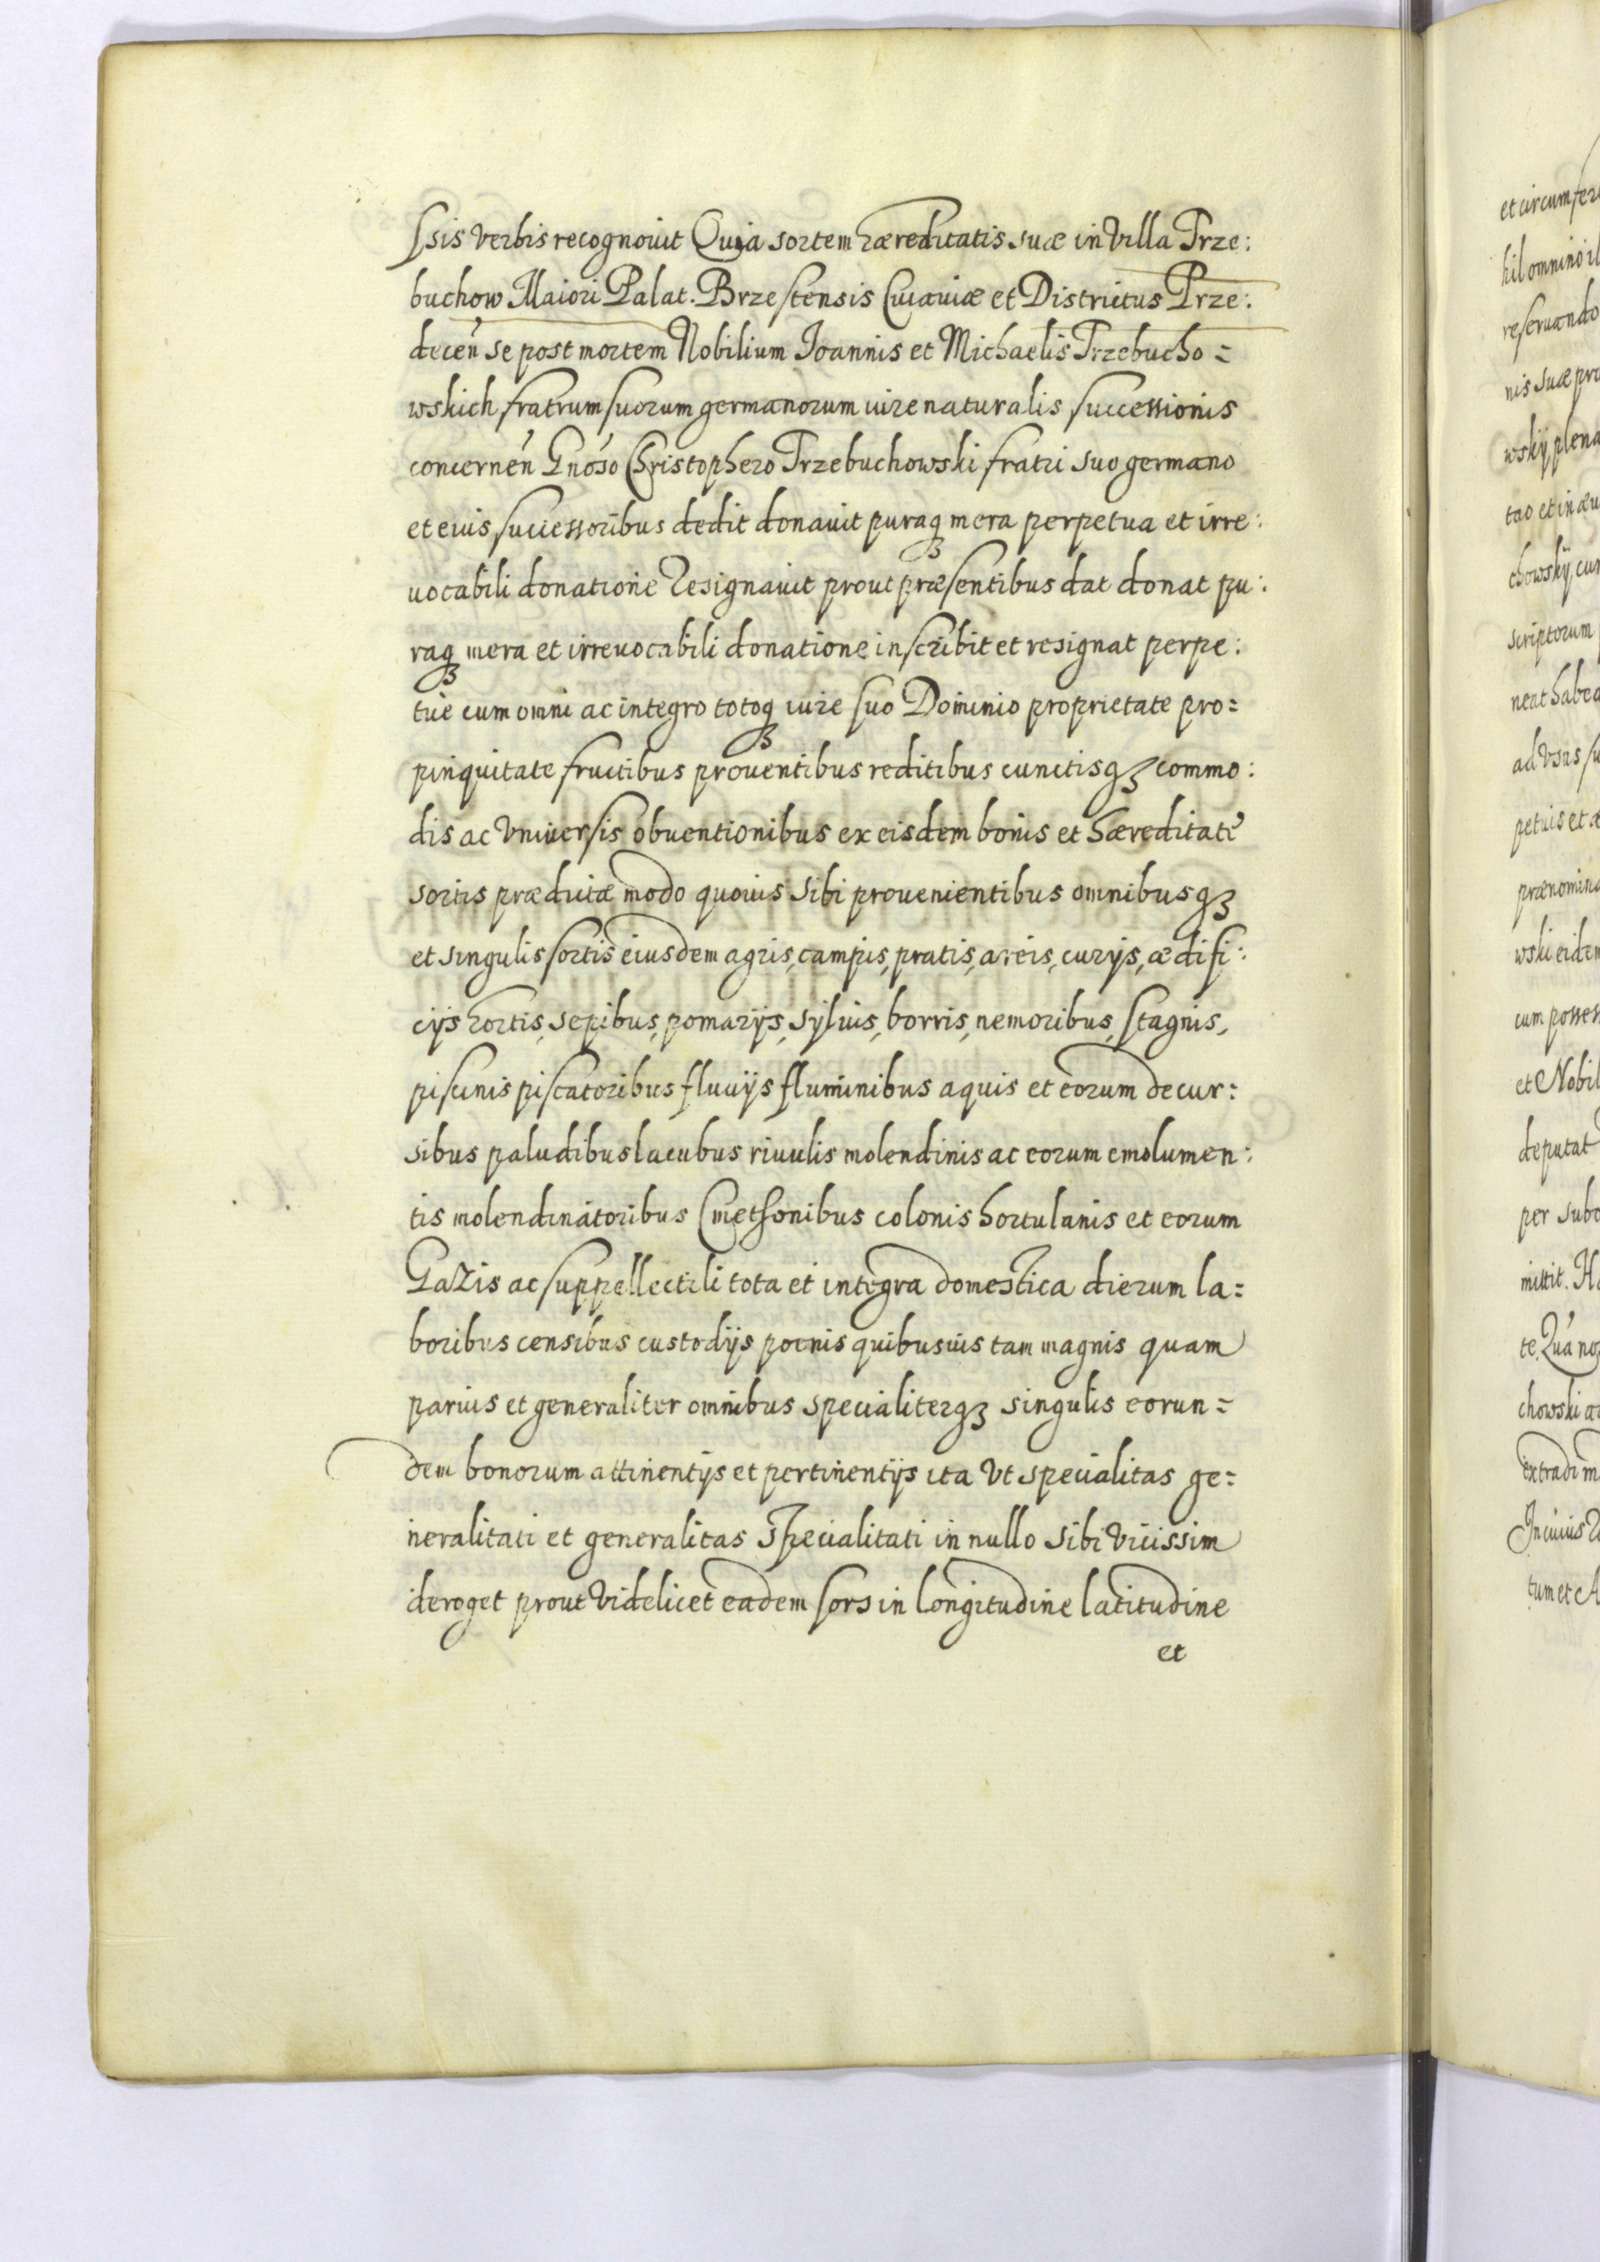 ssis verbis recognouit Quia sortem hæreditatis suæ in villa Trze:
buchow Maiori Palat. Brzestensis Cuiauiæ et Districtus Prze:
decen̄ se post mortem Nobilium Ioannis et Michaelis Trzebucho=
wskich fratrum suorum germanorum iure naturalis successionis
concernen̄ Gnōso Christophero Trzebuchowski fratri suo germano
et eius successoribus dedit donauit puraqꝫ mera perpetua et irre:
uocabili donatione resignauit prout præsentibus dat donat pu:
raqꝫ mera et irreuocabili donatione inscribit et resignat perpe:
tue cum omni ac integro totoqꝫ iure suo Dominio proprietate pro=
pinquitate fructibus prouentibus reditibus cunctisqꝫ commo:
dis ac vniuersis obuentionibus ex eisdem bonis et hæreditate
sortis prædictæ modo quouis sibi prouenientibus omnibusqꝫ
et singulis sortis eiusdem agris, campis, pratis, areis, curijs, ædifi:
cijs hortis, sepibus, pomarijs, syluis, borris, nemoribus, stagnis,
piscinis piscatoribus fluuijs fluminibus aquis et eorum decur=
sibus paludibus lacubus riuulis molendinis ac eorum emolumen:
tis molendinatoribus Cmethonibus colonis hortulanis et eorum
Gazis ac suppellectili tota et integra domestica dierum la=
boribus censibus custodijs poenis quibusuis tam magnis quam
paruis et generaliter omnibus specialiterqꝫ singulis eorun=
dem bonorum attinentijs et pertinentijs ita vt specialitas ge=
neralitati et generalitas specialitati in nullo sibi vicissim
deroget prout videlicet eadem sors in longitudine latitudine
et
et circumfer
hil omnino
reseruando
nis suæ
wskij plena
tao et in æu
chowskij, cu
scriptorum
neat habea
ad vsus su
petuis et æ
prænomina
wski eidem
cum possess
et Nobil
deputat
per subd
mittit. Ha
te, Qua no
chowski ac
extradi m
In cuius
tum et A